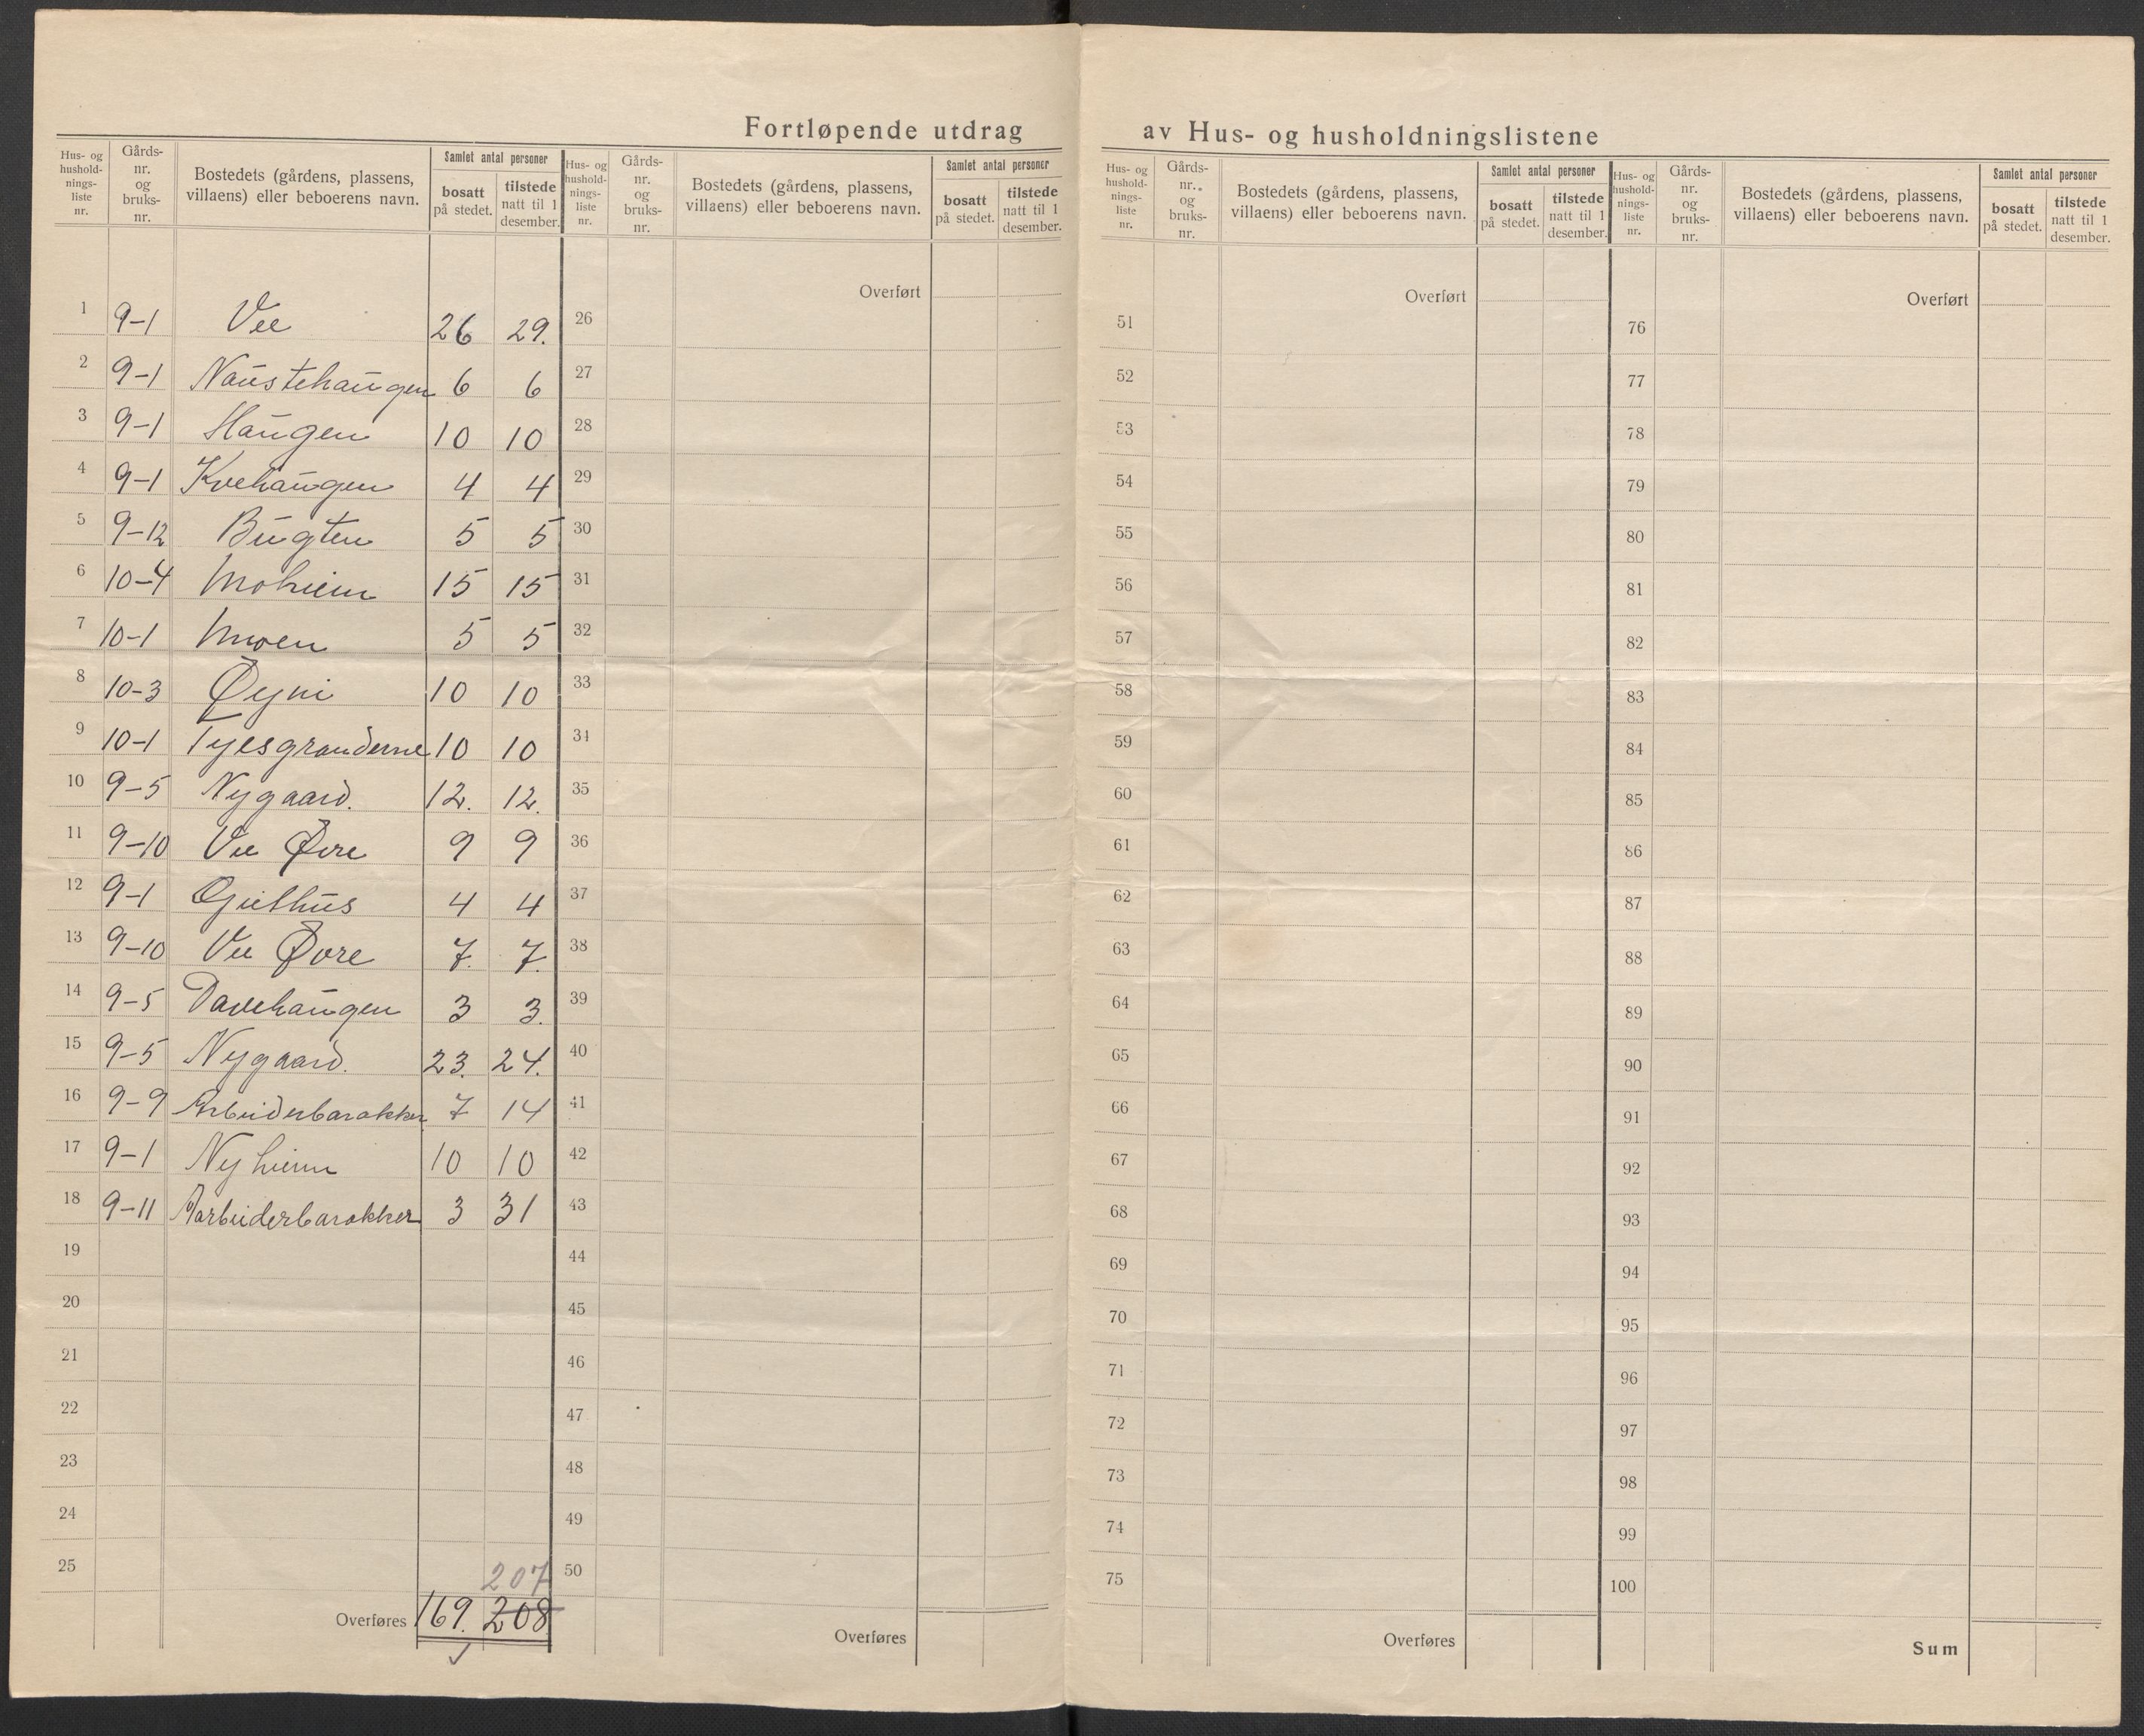 Fortløpende utdrag av Hus- og husholdningslistene
Hus- og hushold-nings-liste nr. Gårds-nr. og bruks-nr. Bostedets (gårdens, plassens, villaens) eller beboerens navn. Samlet antal personer bosatt på stedet. tilstede natt til 1 desember.
1 9-1 Vee 26 29.
2 9-1 Naustehaugen 6 6
3 9-1 Haugen 10 10
4 9-1 Kvehaugen 4 4
5 9-12 Bugten 5 5
6 10-4 Moheim 15 15
7 10-1 Moen 5 5
8 10-3 Øyni 10 10
9 10-1 Tyesgranderne 10 10
10 9-5 Nygaard. 12. 12.
11 9-10 Vee Øvre 9 9
12 9-1 Gjelhus 4 4
13 9-10 Vee Øvre 7. 7.
14 9-5 Davehaugen 3 3.
15 9-5 Nygaard. 23. 24.
16 9-9 Arbeiderbarakker 7 14
17 9-1 Nyheim 10 10
18 9-11 Aarbeiderbarakker 3 31
19
20
21
22
23
24
25
207
Overføres 169. 208
Hus- og hushold-nings-liste nr. Gårds-nr. og bruks-nr. Bostedets (gårdens, plassens, villaens) eller beboerens navn. Samlet antal personer bosatt på stedet. tilstede natt til 1 desember.
Overført
26
27
28
29
30
31
32
33
34
35
36
37
38
39
40
41
42
43
44
45
46
47
48
49
50
Overføres
Hus- og hushold-nings-liste nr. Gårds-nr. og bruks-nr. Bostedets (gårdens, plassens, villaens) eller beboerens navn. Samlet antal personer bosatt på stedet. tilstede natt til 1 desember.
Overført
51
52
53
54
55
56
57
58
59
60
61
62
63
64
65
66
67
68
69
70
71
72
73
74
75
Overføres
Hus- og hushold-nings-liste nr. Gårds-nr. og bruks-nr. Bostedets (gårdens, plassens, villaens) eller beboerens navn. Samlet antal personer bosatt på stedet. tilstede natt til 1 desember.
Overført
76
77
78
79
80
81
82
83
84
85
86
87
88
89
90
91
92
93
94
95
96
97
98
99
100
Sum